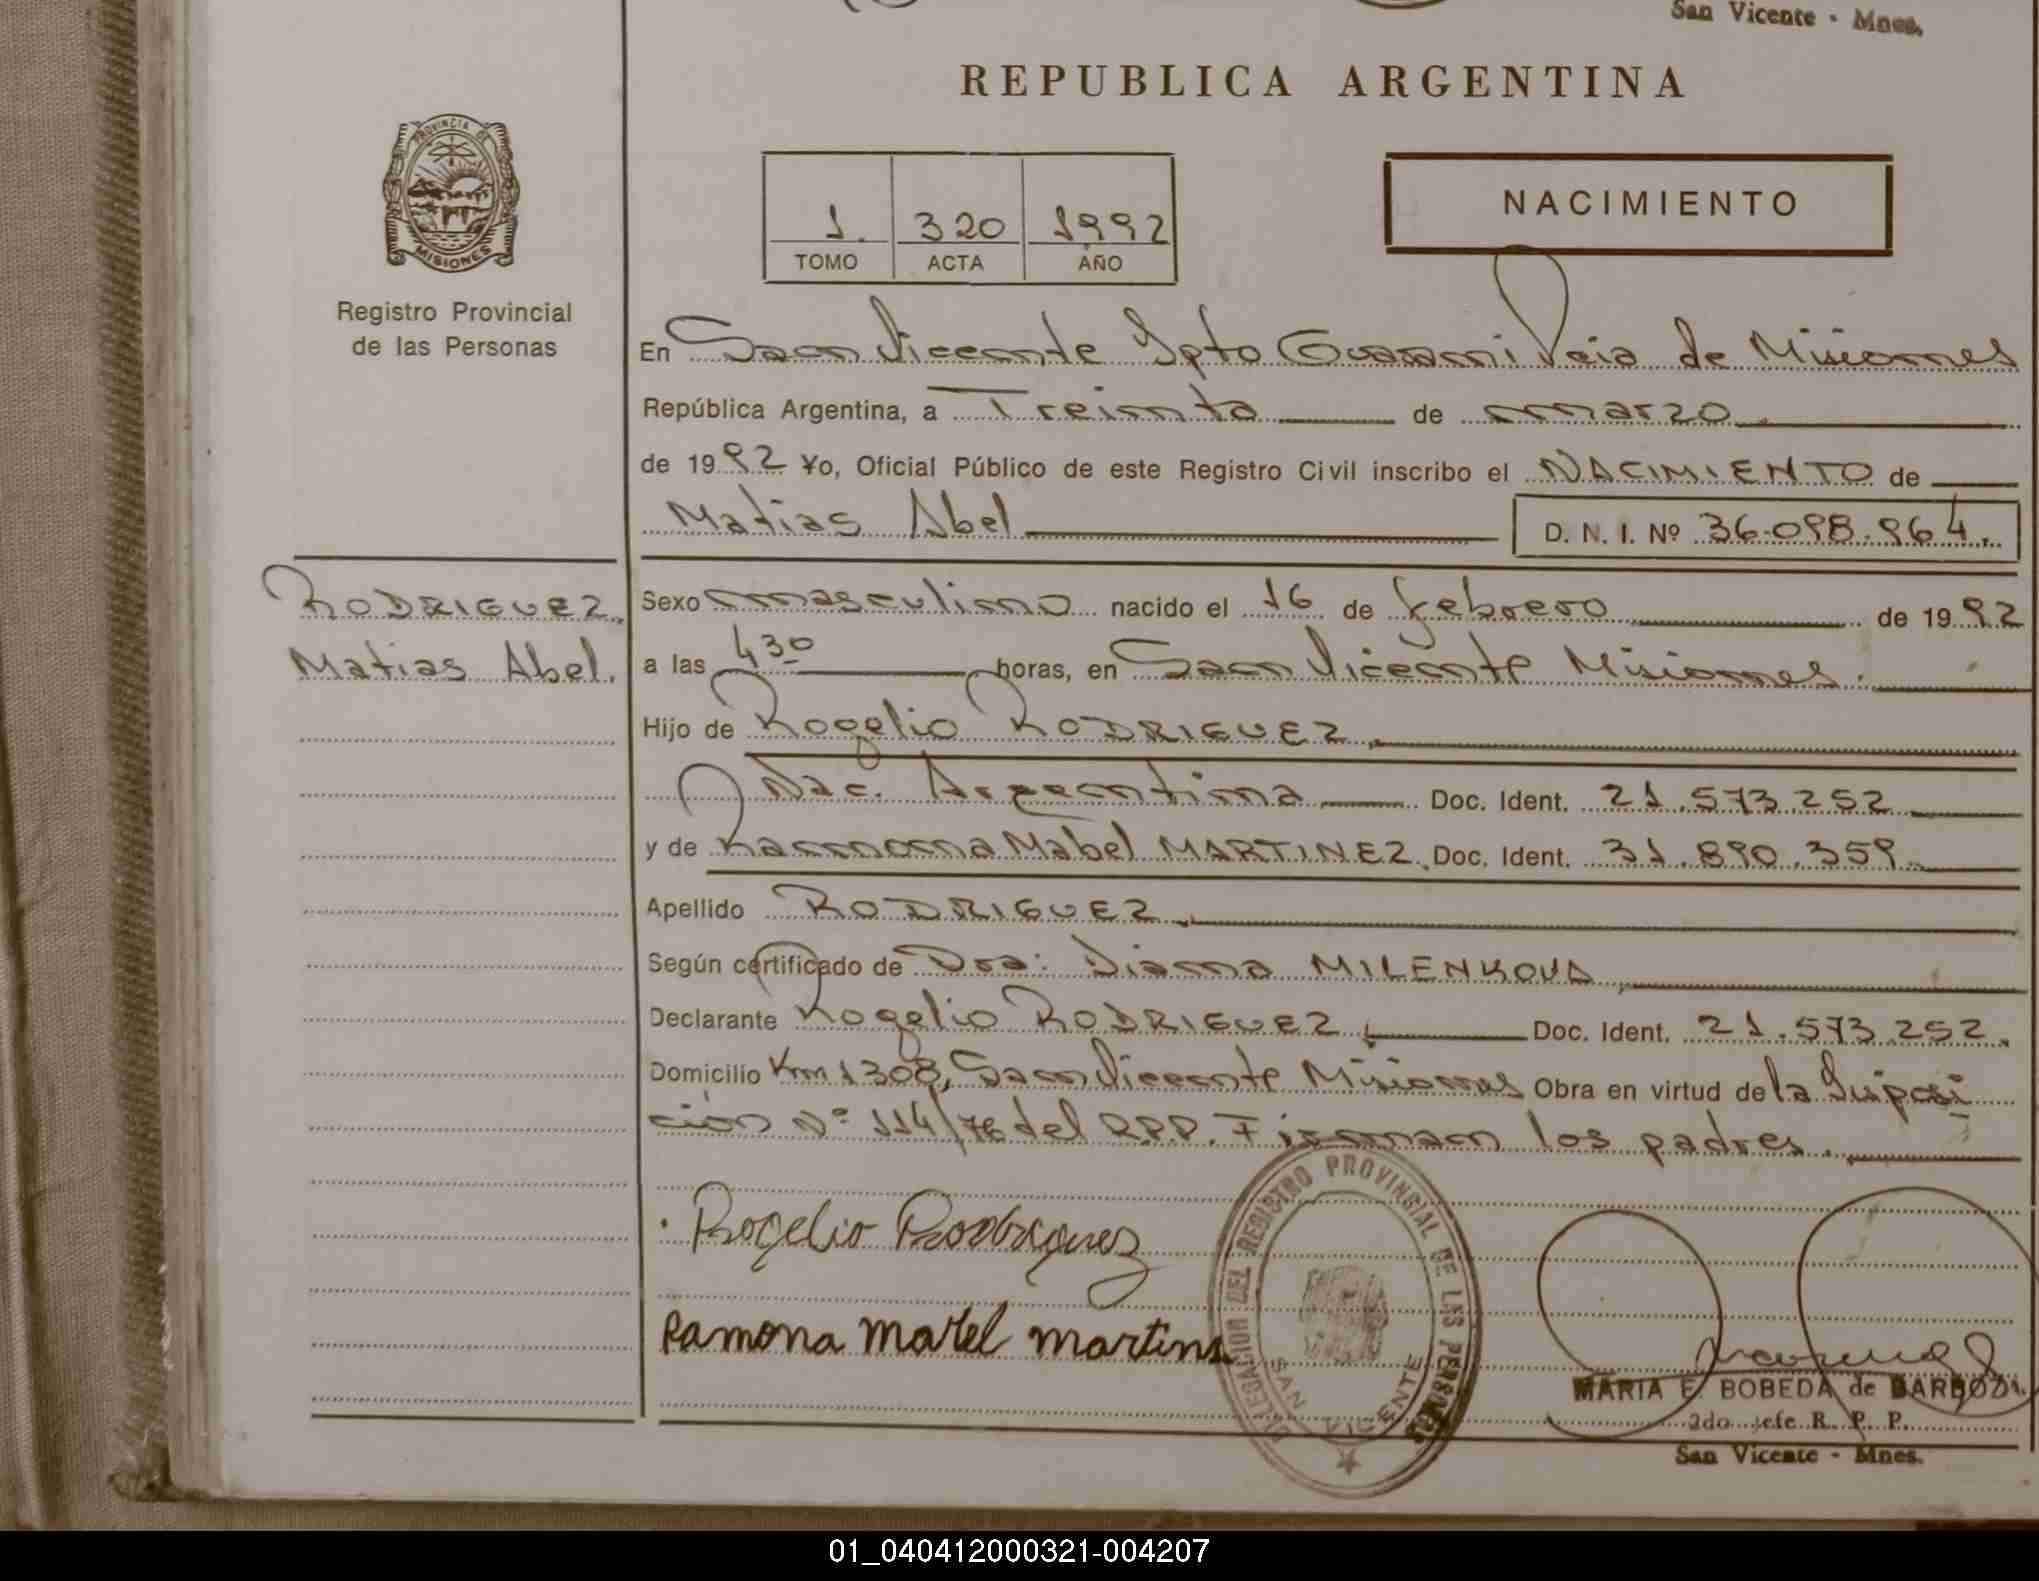 San Vicente - Mnes.
REPUBLICA ARGENTINA
PROVINCIA DE
MISIONES
Registro Provincial
de las Personas
1. 320 1992
TOMO ACTA AÑO
NACIMIENTO
En San Vicente Dpto Guarani Pcia de Misiones
República Argentina, a Treinta de marzo
de 1992 Yo, Oficial Público de este Registro Civil inscribo el NACIMIENTO de
Matias Abel D. N. I. Nº 36.098.964.
RODRIGUEZ
Matias Abel.
Sexo masculino nacido el 16 de febrero de 1992
a las 4 30 horas, en San Vicente Misiones.
Hijo de Rogelio RODRIGUEZ
Nac. Argentina Doc. Ident. 21.573.252
y de Ramona Mabel MARTINEZ Doc. Ident. 31.890.359
Apellido RODRIGUEZ
Según certificado de Dra: Diana MILENKOVA
Declarante Rogelio RODRIGUEZ Doc. Ident. 21.573.252.
Domicilio Km 1308, San Vicente Misiones Obra en virtud de la Disposi
ción Nº 114/76 del R.P.P. Firman los padres.
Rogelio Rodriguez
Ramona Mabel Martins
DELEGACION DEL REGISTRO PROVINCIAL DE LAS PERSONAS
SAN VICENTE
MARIA E. BOBEDA de BARBOZA
2do jefe R. P. P.
San Vicente - Mnes.
01_040412000321-004207